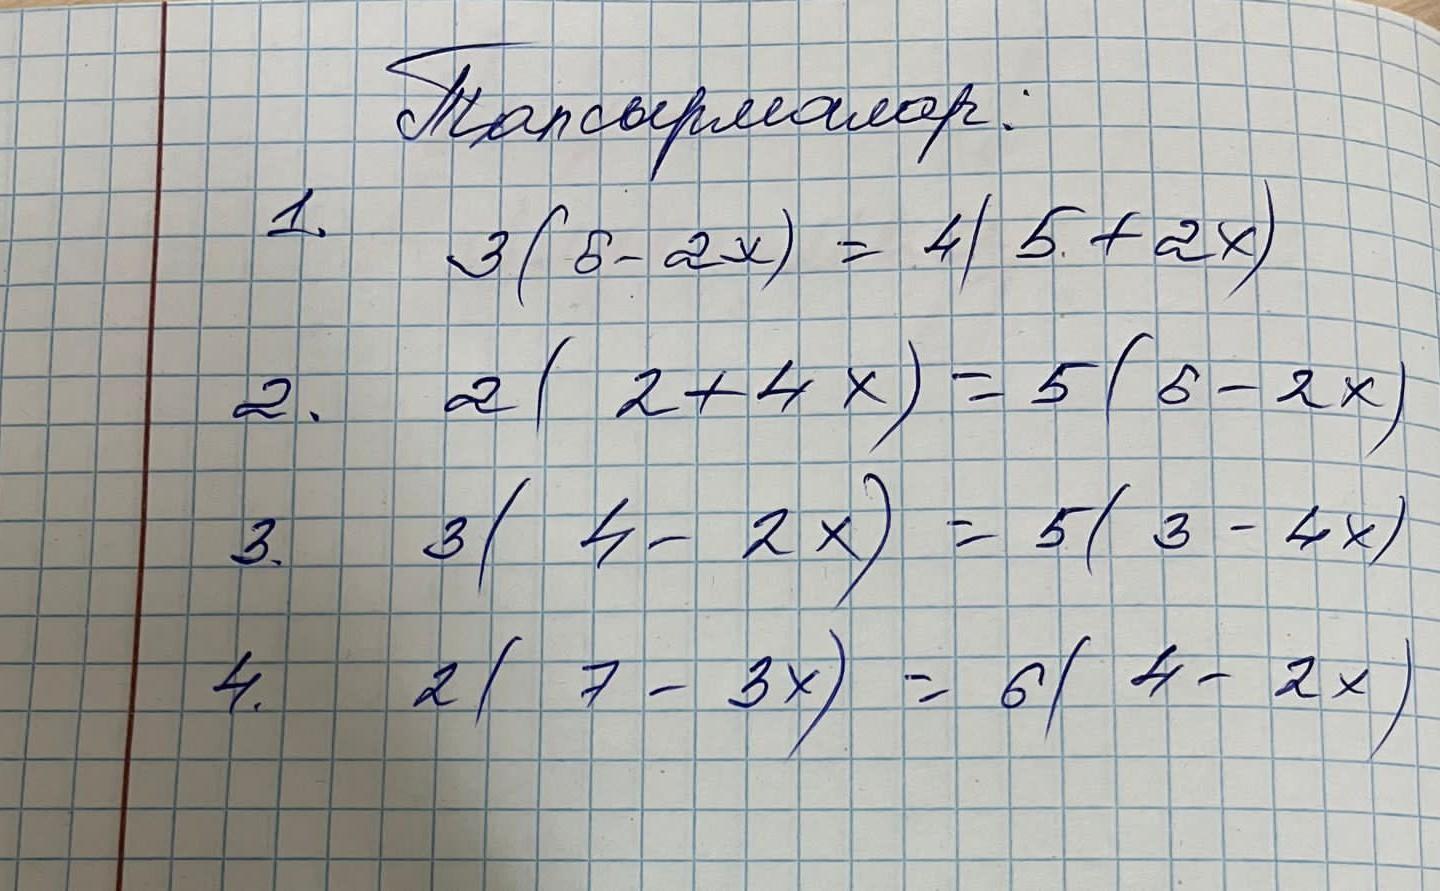 Тапсырмалар:
1. 3(5-2x) = 4(5+2x)
2. 2(2+4x) = 5(5-2x)
3. 3(4-2x) = 5(3-4x)
4. 2(7-3x) = 6(4-2x)